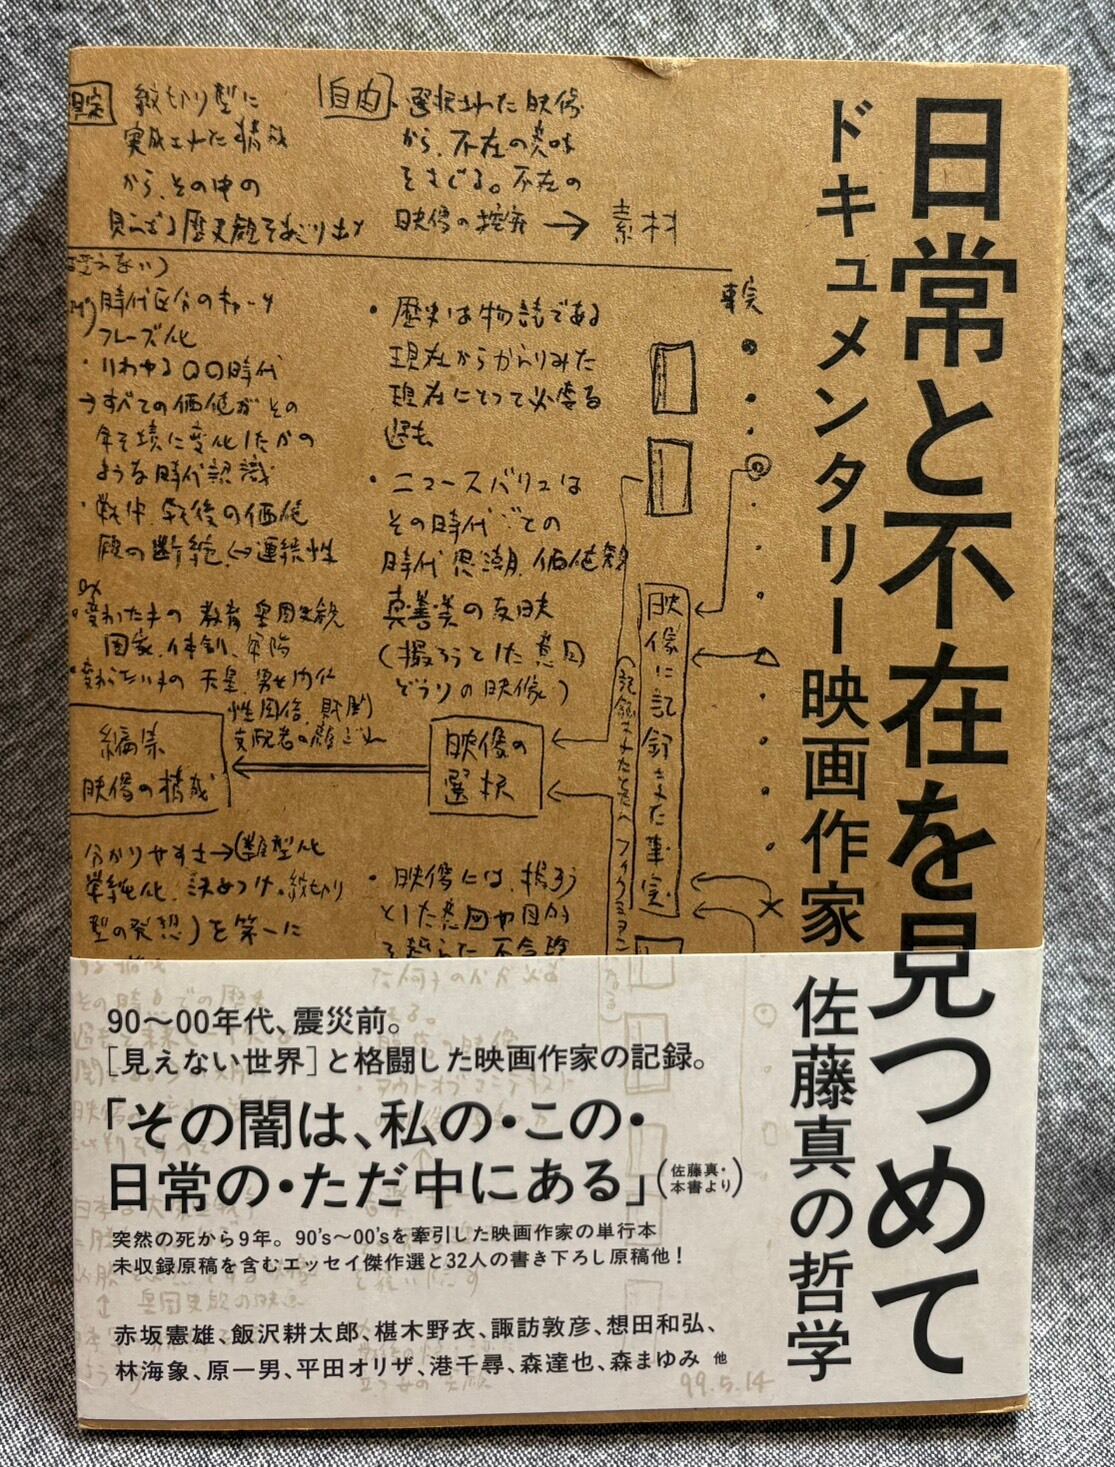 日常と不在を見つめて
ドキュメンタリー映画作家 佐藤真の哲学
紋切り型に
実成された構成
から、その中の
見えざる歴史観をあぶり出す
自由
選択された映像
から、不在の意味
をさぐる。不在の
映像の探究 → 素材
時代区分のキャッチ
フレーズ化
・いわゆる〇〇時代
→すべての価値がその
年を境に変化したかの
ような時代認識
・戦中、戦後の価値
観の断絶↔連続性
ex
教育 皇国史観
国家、体制、軍隊
天皇、男女
・歴史は物語である
現在からかえりみた
現在にとって必要な
過去
・ニュースバリューは
その時代ごとの
時代思潮、価値観
真・善・美の反映
(撮ろうとした意図
どうりの映像)
事実
映像に記録された事実
編集
映像の構成
映像の
選択
分かりやすさ→(類型化
単純化、決めつけ、紋切り
型の発想)を第一に
・映像には、撮ろう
とした意図や目的
90〜00年代、震災前。
[見えない世界]と格闘した映画作家の記録。
「その闇は、私の・この・
日常の・ただ中にある」(佐藤真・本書より)
突然の死から9年。90's〜00'sを牽引した映画作家の単行本
未収録原稿を含むエッセイ傑作選と32人の書き下ろし原稿他!
赤坂憲雄、飯沢耕太郎、椹木野衣、諏訪敦彦、想田和弘、
林海象、原一男、平田オリザ、港千尋、森達也、森まゆみ 他
99.5.14